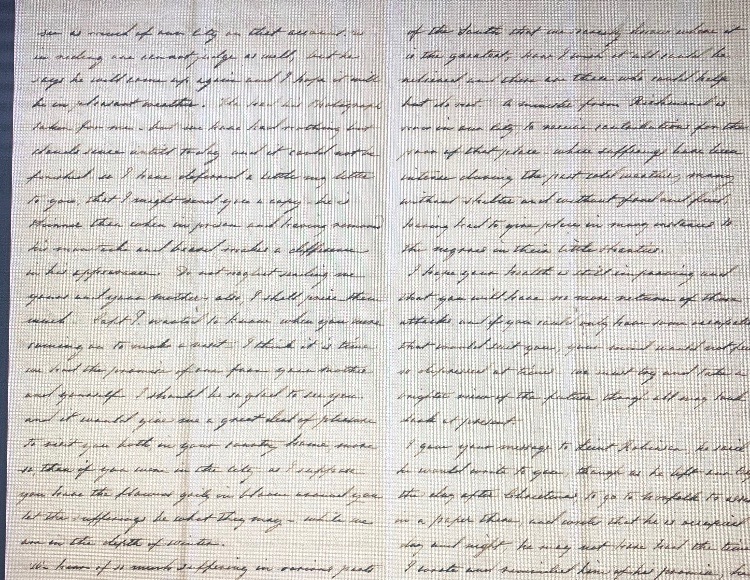 see as much of our city on that account as
in riding one cannot judge as well, but he
says he will come up again and I hope it will
be in pleasant weather. He had his Photograph
taken for me, but we have had nothing but
clouds since until today and it could not be
finished so I have deferred a little my letter
to you, that I might send you a copy. he is
thinner than when in prison and having removed
his moustache and beard makes a difference
in his appearance. Do not neglect sending me
yours and your mothers also, I shall prize them
much. I wanted to know when you were
coming on to make a visit I think it is time
we had the promise of one from your mother
and yourself. I should be so glad to see you
and it would give me a great deal of pleasure
to visit you both in your country home more
so, than if you were in the city as I suppose
you have the flowers gaily in bloom around you
let the sufferings be what they may - while we
are in the depth of winter.
We hear of so much suffering in various parts
of the South that we scarcely know where it
is the greatest, how I wish it all could be
relieved and there are those who could help
but do not. A minister from Richmond is
now in our city to receive contributions for the
poor of that place where sufferings have been
intense during the past cold weather, many
without shelter and without food and fuel,
having had to give place in many instances to
the negroes in their little shanties.
I hope your health is still improving and
that you will have no more return of those
attacks and if you could only have some
that would suit you, your mind would not
so depressed at times. we must try and take a
brighter view of the future though all may look
dark at present.
I gave your message to Lieut Robinson he said
he would write to you, though as he left our city
the day after Christmas to go to Norfolk to
in a paper there, and wrote that he is occupied
day and night he may not have had the time
I wrote and reminded him of his promise,